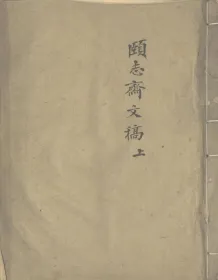 頤志齋文稿上